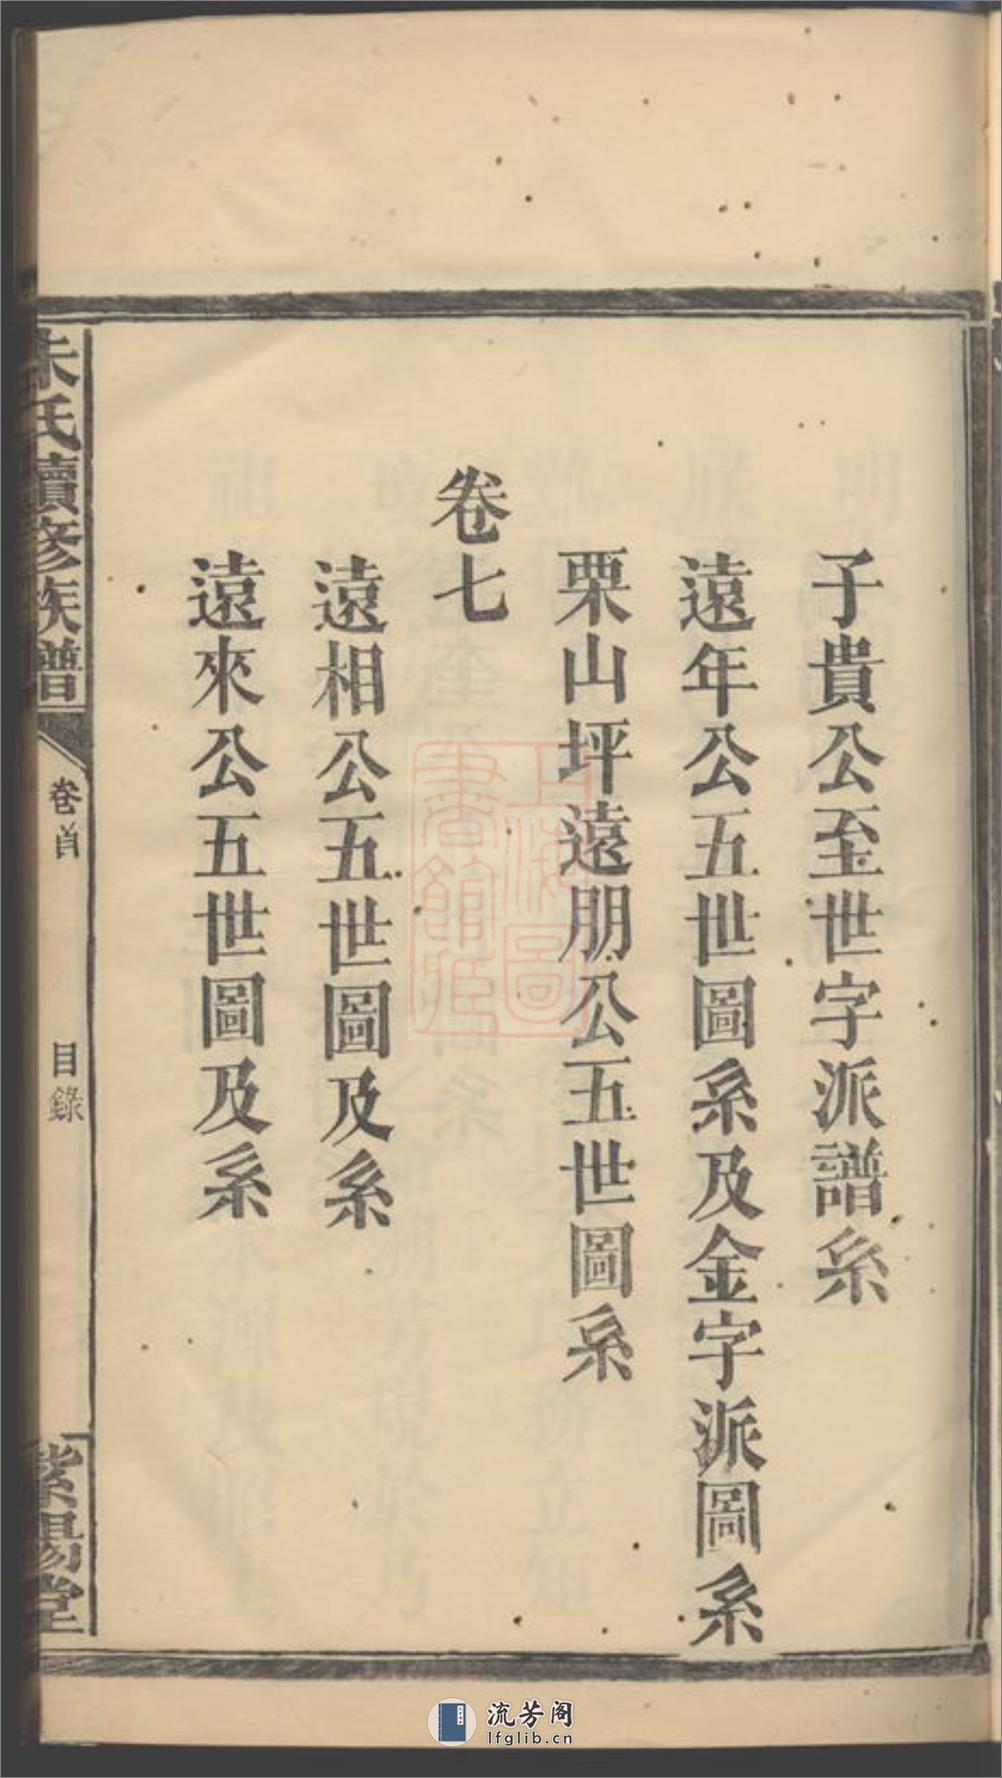 子貴公至世字派譜系
遠年公五世圖系及金字派圖系
栗山坪遠朋公五世圖系
卷七
遠相公五世圖及系
遠來公五世圖及系
朱氏續修族譜
卷首
目錄
紫陽堂
上海圖書館藏
流芳阁
lfglib.cn